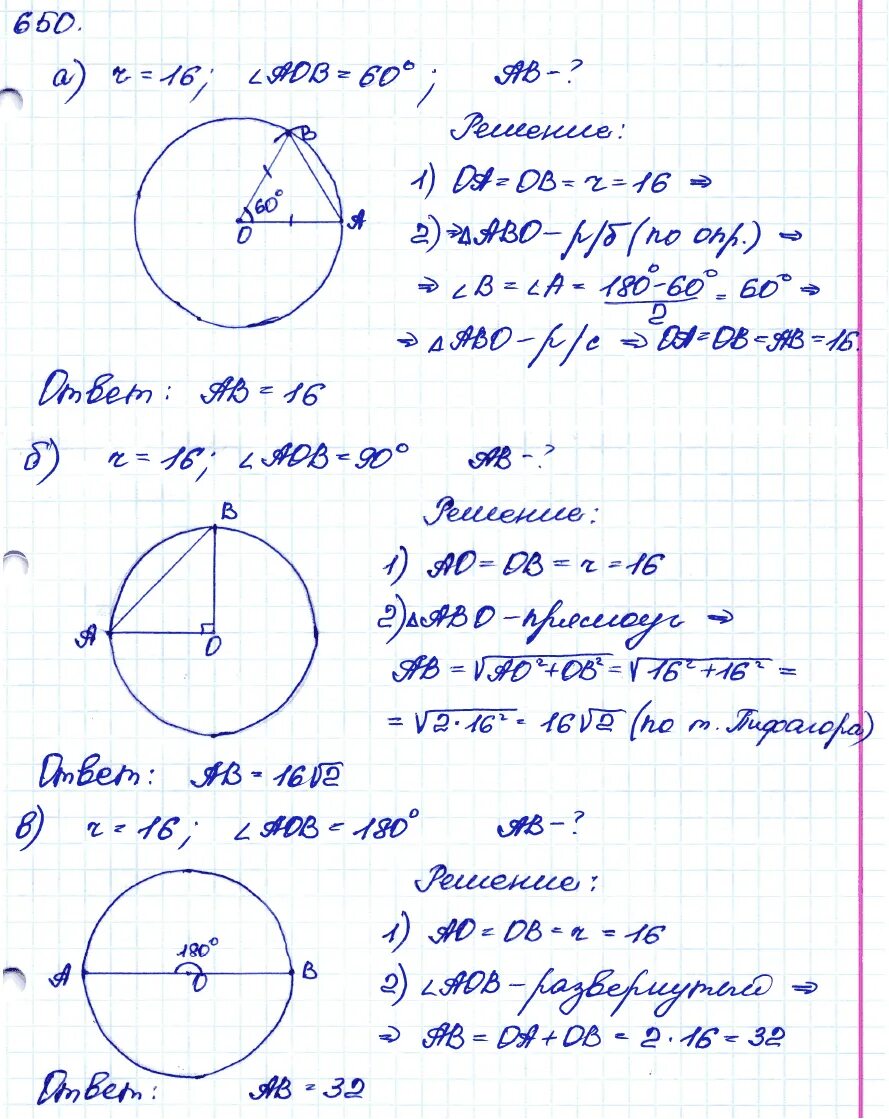 650.
а) r = 16; ∠AOB = 60°; AB - ?
Решение:
B
60°
O
A
1) OA = OB = r = 16 ⇒
2) ⇒ △ABO – р/б (по опр.) ⇒
⇒ ∠B = ∠A = (180° - 60°)/2 = 60° ⇒
⇒ △ABO – р/с ⇒ OA = OB = AB = 16.
Ответ: AB = 16
б) r = 16; ∠AOB = 90° AB - ?
Решение:
B
A
O
1) AO = OB = r = 16
2) △ABO – прямоуг ⇒
AB = √(AO² + OB²) = √(16² + 16²) =
= √(2·16²) = 16√2 (по т. Пифагора)
Ответ: AB = 16√2
в) r = 16; ∠AOB = 180° AB - ?
Решение:
180°
A
O
B
1) AO = OB = r = 16
2) ∠AOB – развернутый ⇒
⇒ AB = OA + OB = 2·16 = 32
Ответ: AB = 32